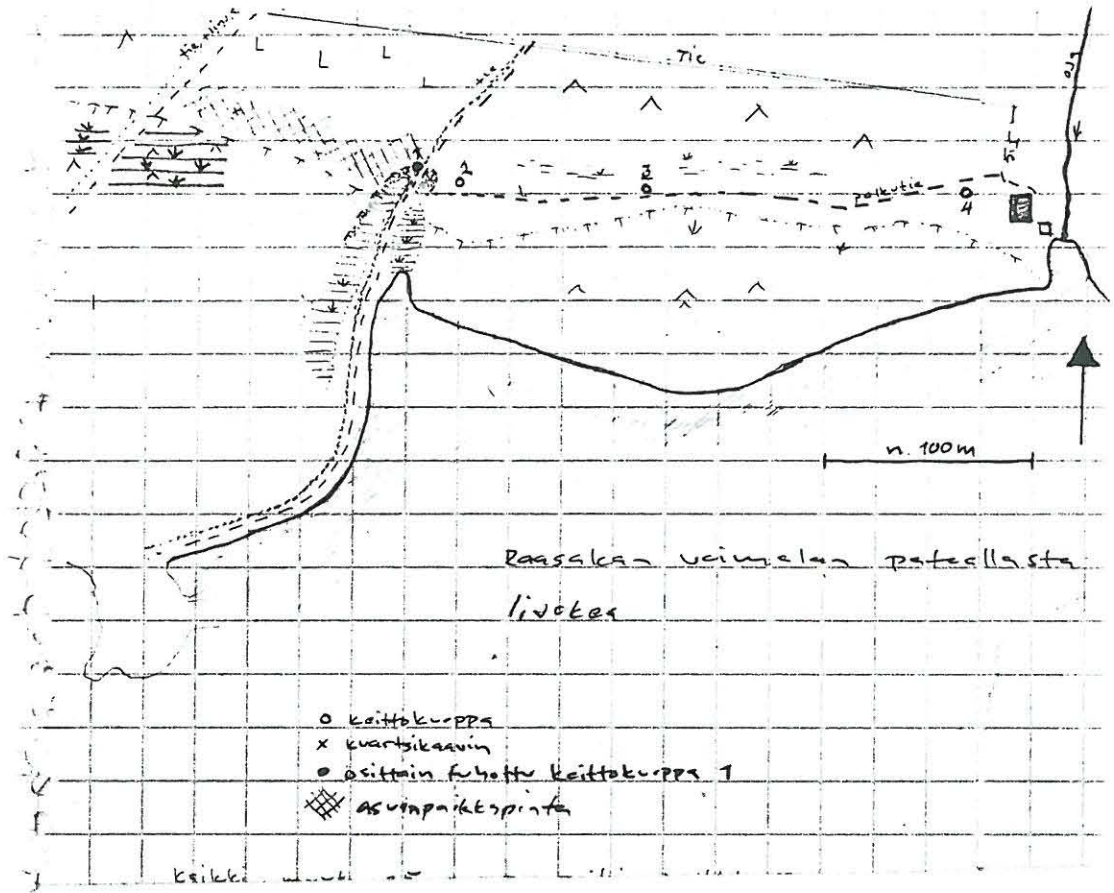 tie linja
tie
Tie
oja
2
3
polkutie
4
n. 100m
Raasakan voimalan patoallasta
Iijokea
o keittokuoppa
x kvartsikaavin
osittain tuhottu keittokuoppa 1
asuinpaikkapinta